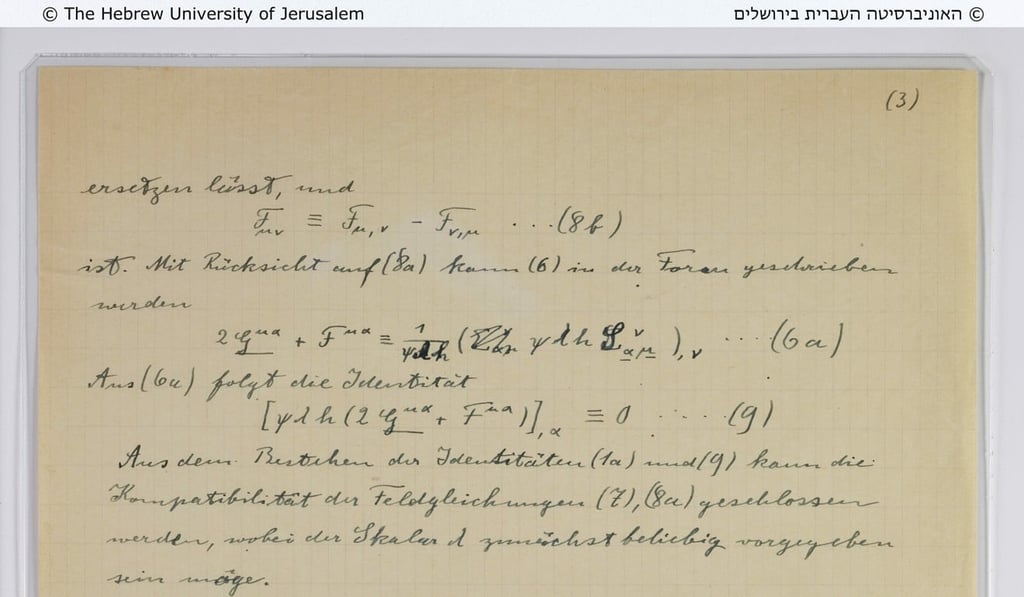 © The Hebrew University of Jerusalem
© האוניברסיטה העברית בירושלים
(3)
ersetzen lässt, und
F_μν ≡ F_μ,ν - F_ν,μ ...(8b)
ist. Mit Rücksicht auf (8a) kann (6) in der Form geschrieben
werden
2 G^μα + F^μα ≡ 1/ψλh ( ψλh 𝔏_αμ^ν ),ν ...(6a)
Aus (6a) folgt die Identität
[ψλh (2 G^μα + F^μα)],α ≡ 0 .....(9)
Aus dem Bestehen der Identitäten (1a) und (9) kann die
Kompatibilität der Feldgleichungen (7), (8a) geschlossen
werden, wobei der Skalar λ zunächst beliebig vorgegeben
sein möge.